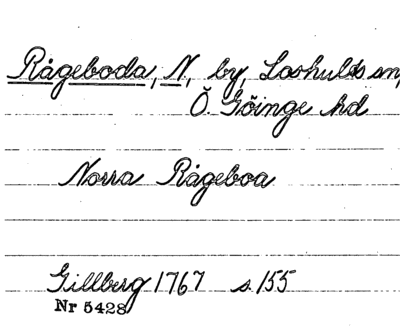 Rågeboda, N, by, Loshults sn,
Ö. Göinge hd
Norra Rågeboa
Gillberg 1767 s. 155
Nr 5428